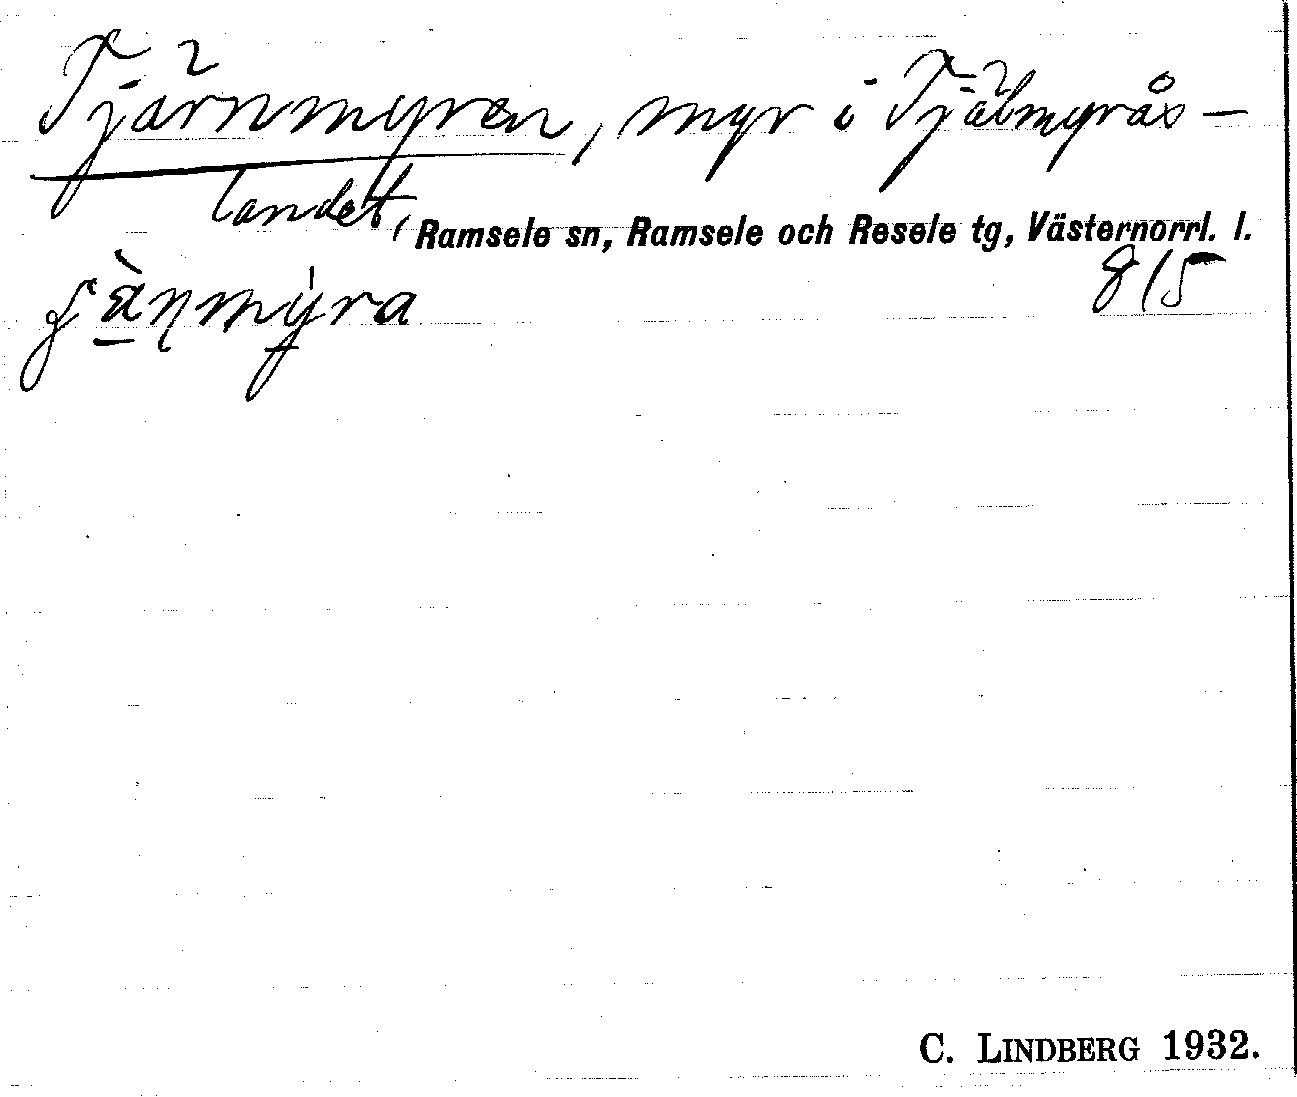 Tjärnmyren, myr i Tjälmyrås-
landet,
Ramsele sn, Ramsele och Resele tg, Västernorrl. l.
815
C. LINDBERG 1932.